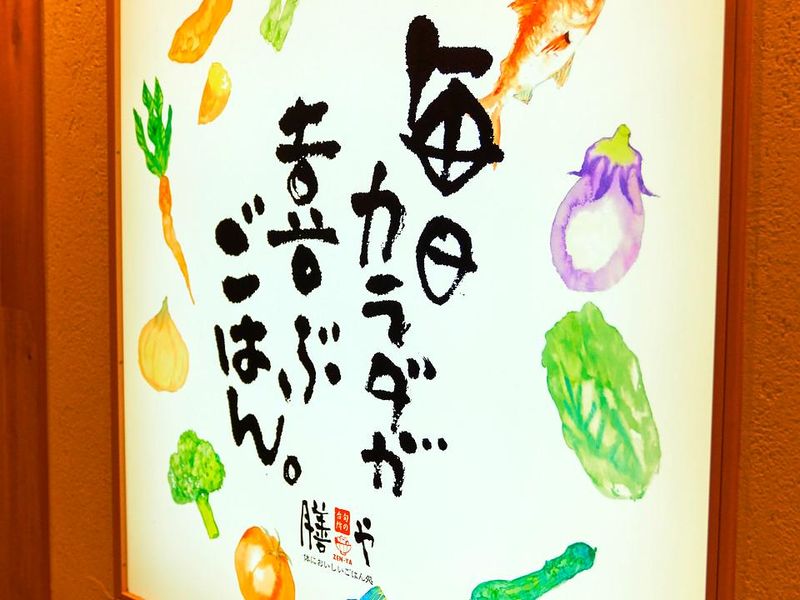 毎日
カラダが
喜ぶ
ごはん。
膳や
旬の
台所
ZEN-YA
体においしいごはん処